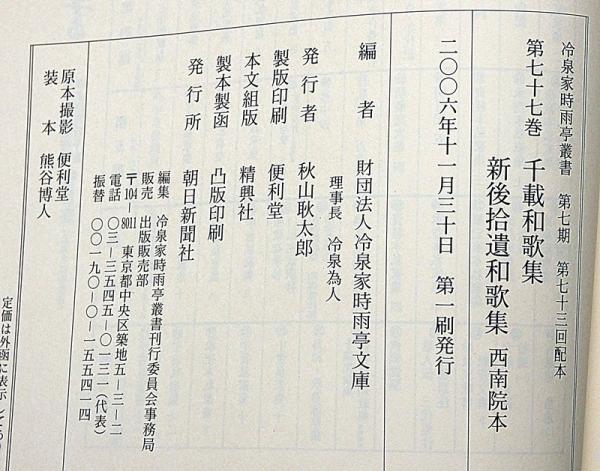 冷泉家時雨亭叢書　第七期　第七十三回配本
第七十七巻　千載和歌集
新後拾遺和歌集　西南院本
二〇〇六年十一月三十日　第一刷発行
編者　財団法人冷泉家時雨亭文庫
理事長　冷泉為人
発行者　秋山耿太郎
製版印刷　便利堂
本文組版　精興社
製本製函　凸版印刷
発行所　朝日新聞社
編集　冷泉家時雨亭叢書刊行委員会事務局
販売　出版販売部
〒104-8011　東京都中央区築地五-三-二
電話　〇三-三五四五-〇一三一（代表）
振替　〇〇一九〇-〇-一五五四一四
原本撮影　便利堂
装本　熊谷博人
定価は外函に表示してあり